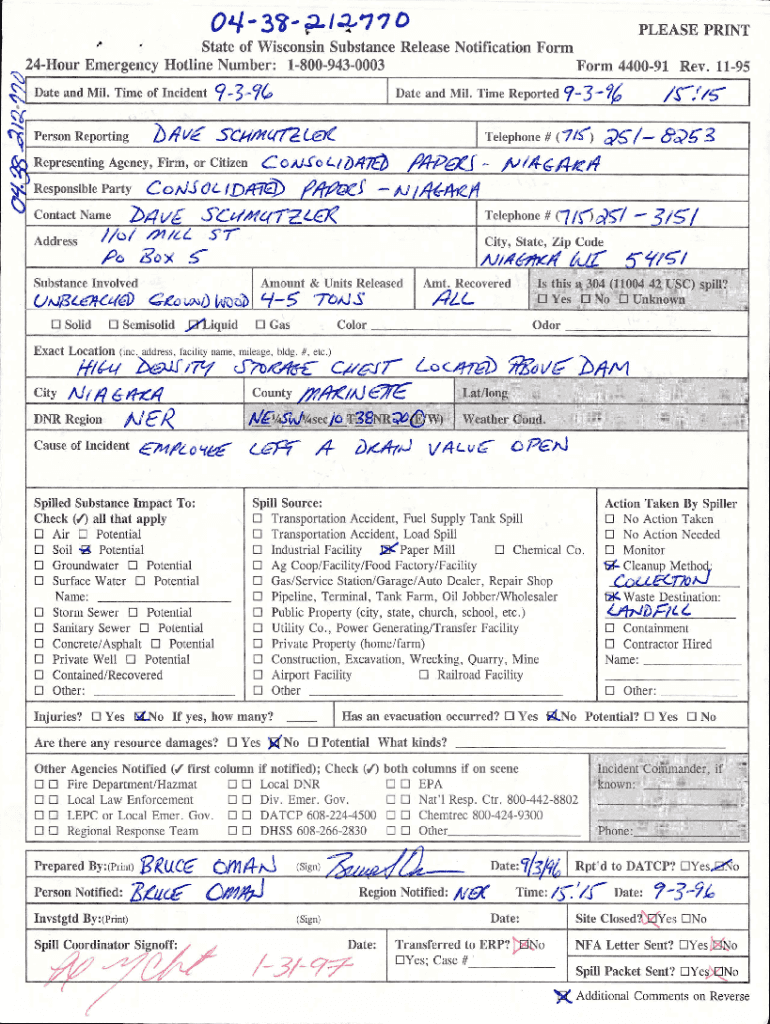 04-38-212770
PLEASE PRINT
State of Wisconsin Substance Release Notification Form
24-Hour Emergency Hotline Number: 1-800-943-0003 Form 4400-91 Rev. 11-95
04-38-212-770
Date and Mil. Time of Incident 9-3-96 Date and Mil. Time Reported 9-3-96 15:15
Person Reporting DAVE SCHMUTZLER Telephone # (715) 251-8253
Representing Agency, Firm, or Citizen CONSOLIDATED PAPERS - NIAGARA
Responsible Party CONSOLIDATED PAPERS - NIAGARA
Contact Name DAVE SCHMUTZLER Telephone # (715) 251-3151
Address 1101 MILL ST City, State, Zip Code
PO BOX 5 NIAGARA WI 54151
Substance Involved Amount & Units Released Amt. Recovered Is this a 304 (11004 42 USC) spill?
UNBLEACHED GROUNDWOOD 4-5 TONS ALL ☐ Yes ☐ No ☐ Unknown
☐ Solid ☐ Semisolid ☑ Liquid ☐ Gas Color Odor
Exact Location (inc. address, facility name, mileage, bldg. #, etc.)
HIGH DENSITY STORAGE CHEST LOCATED ABOVE DAM
City NIAGARA County MARINETTE Lat/long
DNR Region NER NE¼SW¼sec10 T38NR20(E/W) Weather Cond.
Cause of Incident EMPLOYEE LEFT A DRAIN VALUE OPEN
Spilled Substance Impact To: Spill Source: Action Taken By Spiller
Check (✓) all that apply ☐ Transportation Accident, Fuel Supply Tank Spill ☐ No Action Taken
☐ Air ☐ Potential ☐ Transportation Accident, Load Spill ☐ No Action Needed
☐ Soil ☑ Potential ☐ Industrial Facility ☒ Paper Mill ☐ Chemical Co. ☐ Monitor
☐ Groundwater ☐ Potential ☐ Ag Coop/Facility/Food Factory/Facility ☒ Cleanup Method:
☐ Surface Water ☐ Potential ☐ Gas/Service Station/Garage/Auto Dealer, Repair Shop COLLECTION
Name: ☐ Pipeline, Terminal, Tank Farm, Oil Jobber/Wholesaler ☒ Waste Destination:
☐ Storm Sewer ☐ Potential ☐ Public Property (city, state, church, school, etc.) LANDFILL
☐ Sanitary Sewer ☐ Potential ☐ Utility Co., Power Generating/Transfer Facility ☐ Containment
☐ Concrete/Asphalt ☐ Potential ☐ Private Property (home/farm) ☐ Contractor Hired
☐ Private Well ☐ Potential ☐ Construction, Excavation, Wrecking, Quarry, Mine Name:
☐ Contained/Recovered ☐ Airport Facility ☐ Railroad Facility
☐ Other: ☐ Other ☐ Other:
Injuries? ☐ Yes ☒ No If yes, how many? Has an evacuation occurred? ☐ Yes ☒ No Potential? ☐ Yes ☐ No
Are there any resource damages? ☐ Yes ☒ No ☐ Potential What kinds?
Other Agencies Notified (✓ first column if notified); Check (✓) both columns if on scene Incident Commander, if
☐ ☐ Fire Department/Hazmat ☐ ☐ Local DNR ☐ ☐ EPA known:
☐ ☐ Local Law Enforcement ☐ ☐ Div. Emer. Gov. ☐ ☐ Nat'l Resp. Ctr. 800-442-8802
☐ ☐ LEPC or Local Emer. Gov. ☐ ☐ DATCP 608-224-4500 ☐ ☐ Chemtrec 800-424-9300
☐ ☐ Regional Response Team ☐ ☐ DHSS 608-266-2830 ☐ ☐ Other Phone:
Prepared By:(Print) BRUCE OMAN (Sign) Date: 9/3/96 Rpt'd to DATCP? ☐Yes ☑No
Person Notified: BRUCE OMAN Region Notified: NER Time: 15:15 Date: 9-3-96
Invstgtd By:(Print) (Sign) Date: Site Closed? ☒Yes ☐No
Spill Coordinator Signoff: Date: Transferred to ERP? ☒No NFA Letter Sent? ☐Yes ☒No
1-31-97 ☐Yes; Case # Spill Packet Sent? ☐Yes ☒No
☒ Additional Comments on Reverse